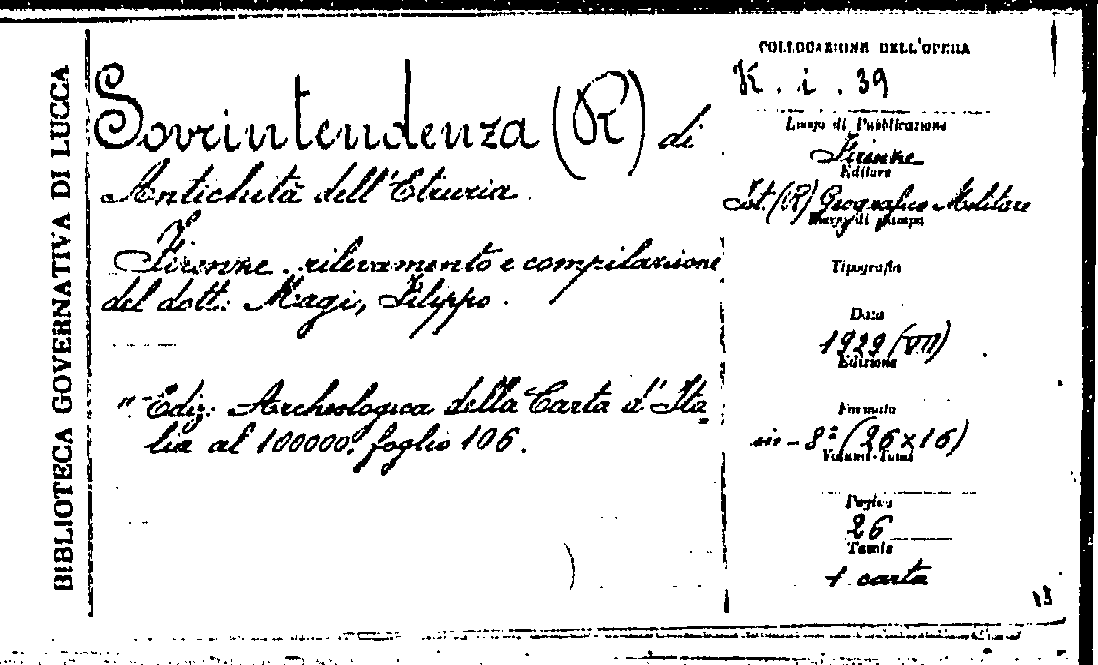 BIBLIOTECA GOVERNATIVA DI LUCCA
Sovrintendenza (R) di
Antichità dell'Etruria.
Firenze. rilevamento e compilazione
del dott: Magi, Filippo.
"Ediz. Archeologica della Carta d'Ita
lia al 100000. foglio 106.
COLLOCAZIONE DELL'OPERA
K. i. 39
Luogo di Pubblicazione
Firenze
Editore
Ist. (R) Geografico Militare
Tipografia
Data
1929 (VII)
Edizione
Formato
in-8º (26x16)
Volumi-Tomi
Pagine
26
Tavole
1 carta